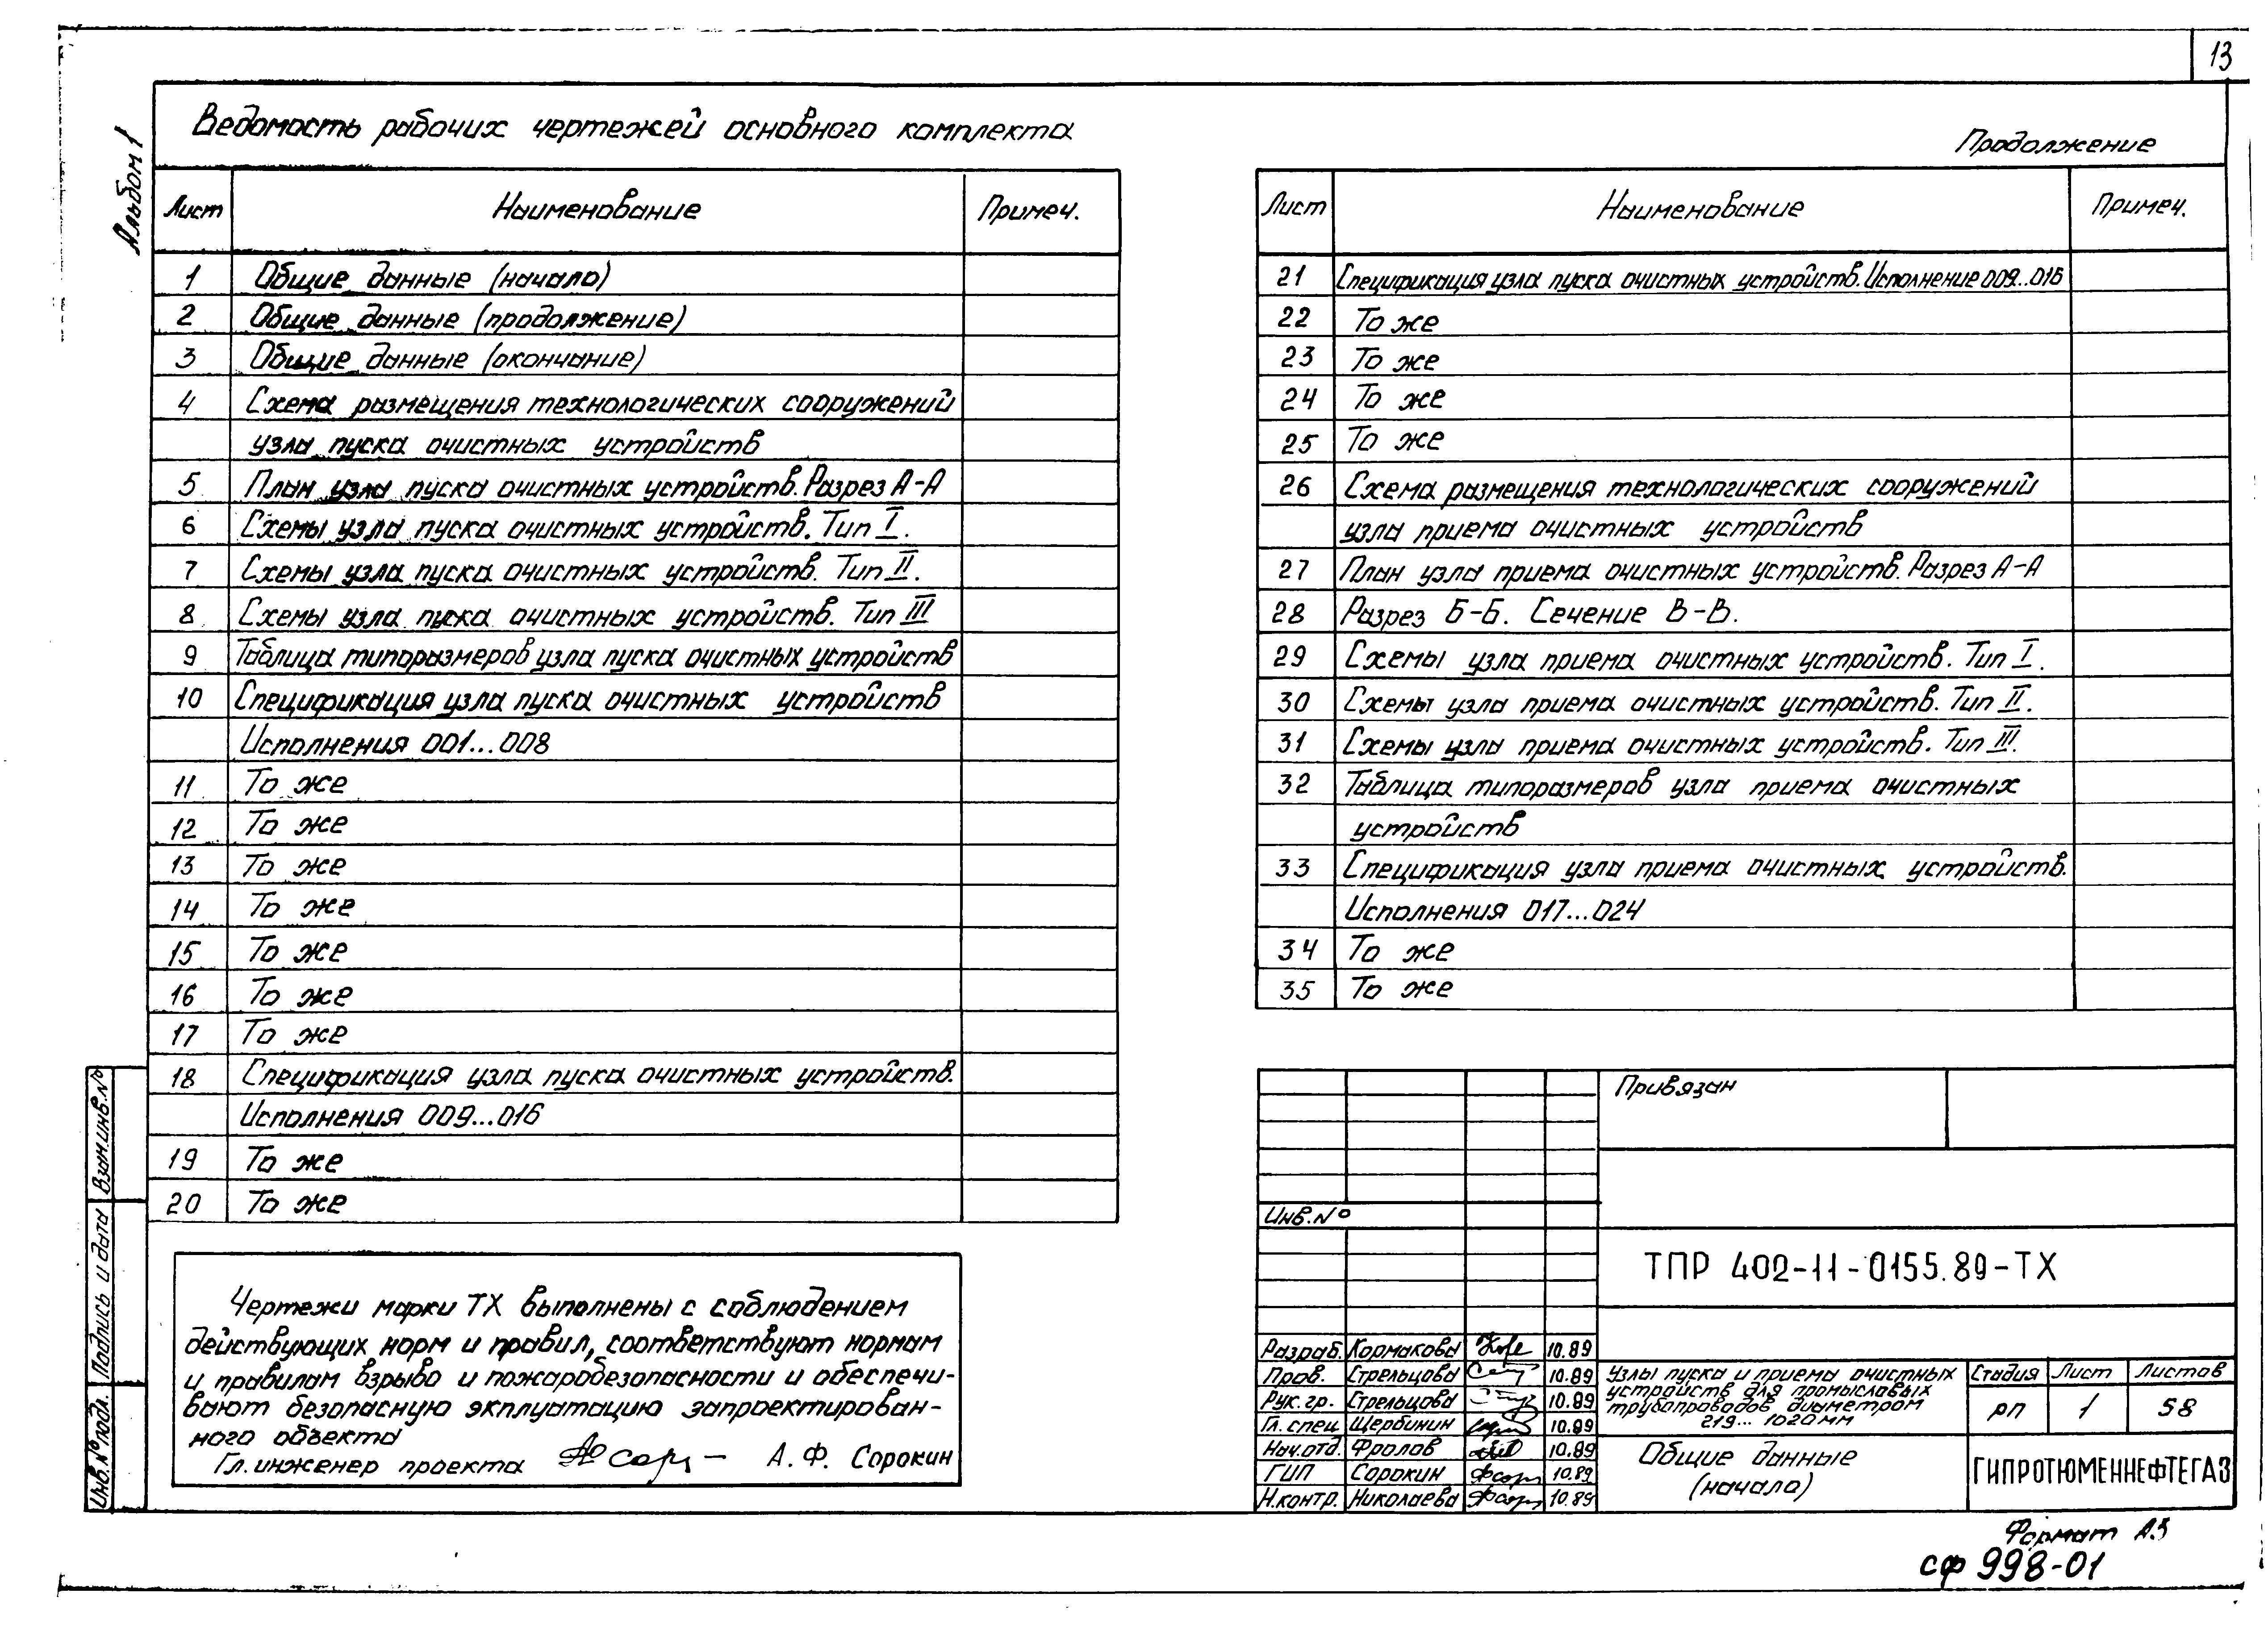 13
Альбом 1
Ведомость рабочих чертежей основного комплекта
Лист Наименование Примеч.
1 Общие данные (начало)
2 Общие данные (продолжение)
3 Общие данные (окончание)
4 Схема размещения технологических сооружений
узла пуска очистных устройств
5 План узла пуска очистных устройств. Разрез А-А
6 Схемы узла пуска очистных устройств. Тип I.
7 Схемы узла пуска очистных устройств. Тип II.
8 Схемы узла пуска очистных устройств. Тип III
9 Таблица типоразмеров узла пуска очистных устройств
10 Спецификация узла пуска очистных устройств
Исполнения 001...008
11 То же
12 То же
13 То же
14 То же
15 То же
16 То же
17 То же
18 Спецификация узла пуска очистных устройств.
Исполнения 009...016
19 То же
20 То же
Продолжение
Лист Наименование Примеч.
21 Спецификация узла пуска очистных устройств. Исполнение 009...016
22 То же
23 То же
24 То же
25 То же
26 Схема размещения технологических сооружений
узла приема очистных устройств
27 План узла приема очистных устройств. Разрез А-А
28 Разрез Б-Б. Сечение В-В.
29 Схемы узла приема очистных устройств. Тип I.
30 Схемы узла приема очистных устройств. Тип II.
31 Схемы узла приема очистных устройств. Тип III.
32 Таблица типоразмеров узла приема очистных
устройств
33 Спецификация узла приема очистных устройств.
Исполнения 017...024
34 То же
35 То же
Чертежи марки ТХ выполнены с соблюдением
действующих норм и правил, соответствуют нормам
и правилам взрыво и пожаробезопасности и обеспечи-
вают безопасную эксплуатацию запроектирован-
ного объекта
Гл. инженер проекта А. Ф. Сорокин
Инв. № подл. Подпись и дата Взам. инв. №
Привязан
Инв. №
ТПР 402-11-0155.89-ТХ
Разраб. Кормакова 10.89
Пров. Стрельцова 10.89
Рук. гр. Стрельцова 10.89
Гл. спец Щербинин 10.89
Нач. отд. Фролов 10.89
ГИП Сорокин 10.89
Н. контр. Николаева 10.89
Узлы пуска и приема очистных
устройств для промысловых
трубопроводов диаметром
219... 1020 мм
Стадия Лист Листов
РП 1 58
Общие данные
(начало)
ГИПРОТЮМЕННЕФТЕГАЗ
Формат А3
сф 998-01